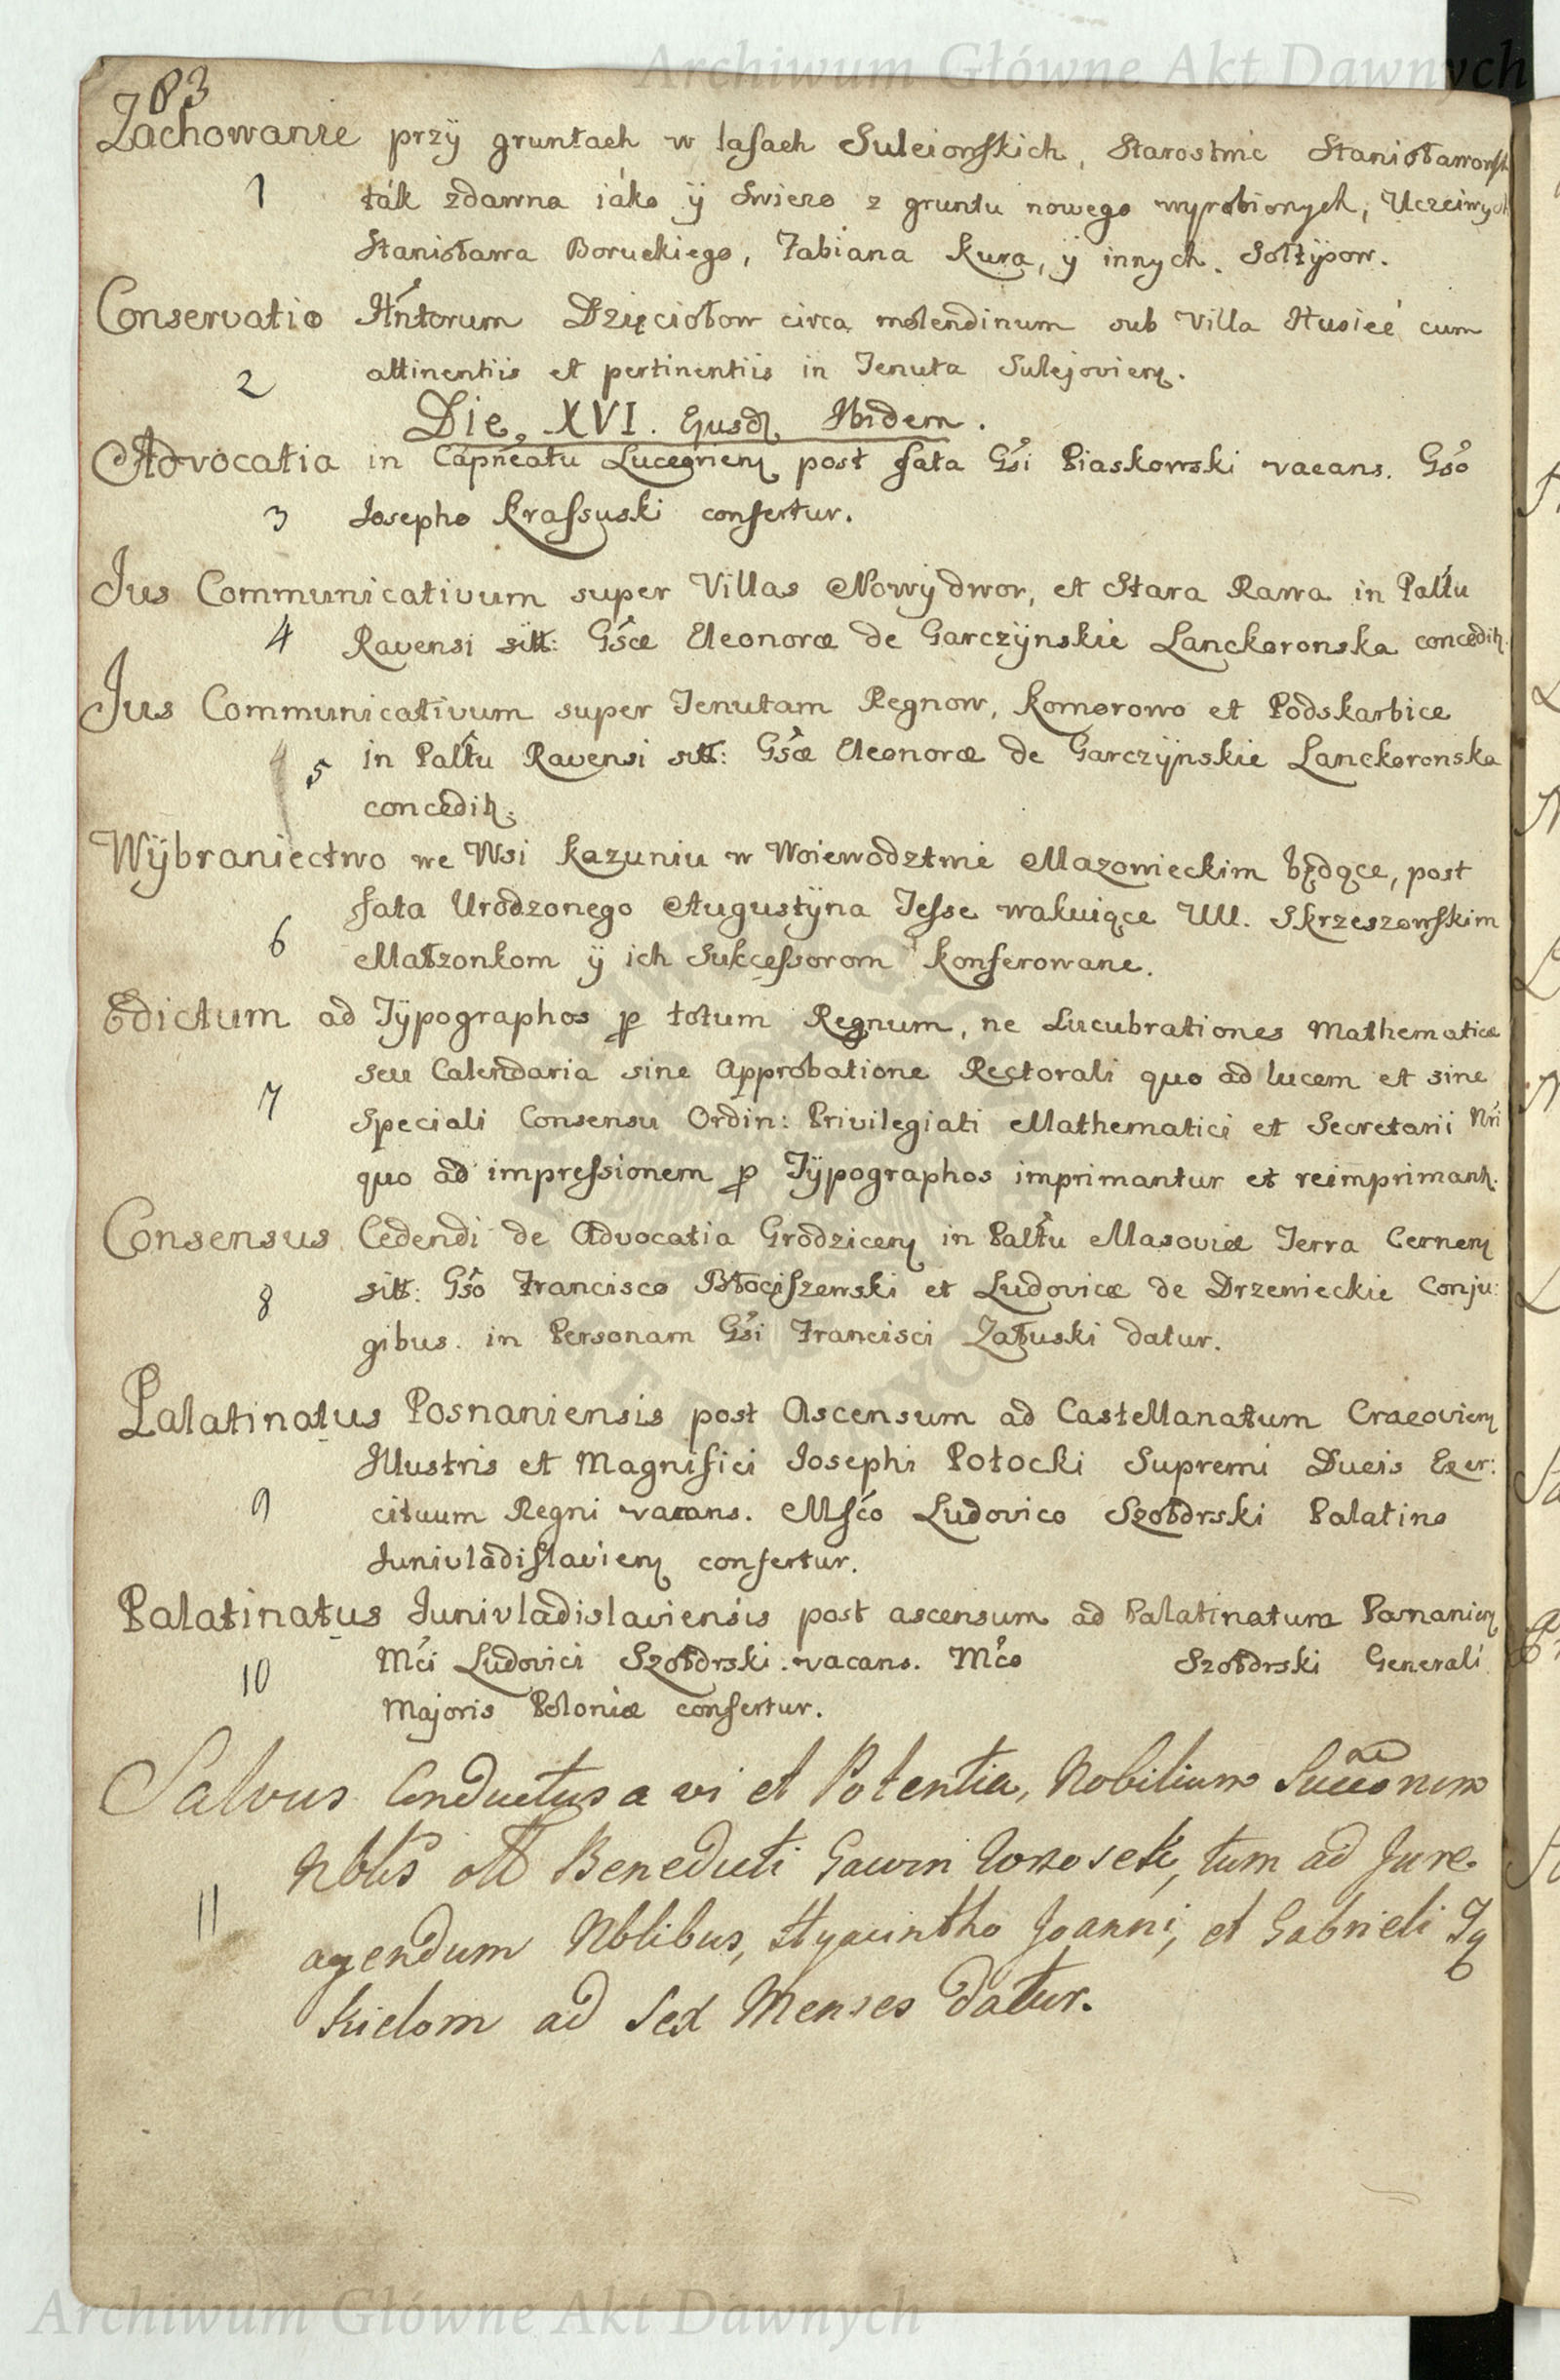 Archiwum Główne Akt Dawnych
83
Zachowanie przÿ gruntach w lasach Suleiowskich, Starostwie Stanisławowsk
1 ták zdawna iáko ÿ swiezo z gruntu nowego wyrobionych, Uczciwych
Stanisława Boruckiego, Fabiana Kura, ÿ innych. Sołtÿsow.
Conservatio Hntorum Dzięciołow circa molendinum sub Villa Husieé cum
2 attinentiis et pertinentiis in Tenuta Sulejovien.
Die, XVI. Ejusd Ibidem.
Advocatia in Capneatu Luceorien post fata Gsi Piaskowski vacans. Gso
3 Josepho Krassuski confertur.
Jus Communicativum super Villas Nowÿ dwor, et Stara Rawa in Paltu
4 Ravensi sitt: Gsæ Eleonoræ de Garczÿnskie Lanckoronska concedit.
Jus Communicativum super Tenutam Regnow, Komorowo et Podskarbice
5 in Paltu Ravensi sitt: Gsæ Eleonoræ de Garczÿnskie Lanckoronska
concedit.
Wÿbraniectwo we Wsi Kazuniu w Woiewodztwie Mazowieckim będące, post
fata Urodzonego Augustÿna Jesse wakuiące UU. Skrzeszewskim
6 Małzonkom ÿ ich Sukcessorom konferowane.
Edictum ad Tÿpographos p totum Regnum, ne Lucubrationes Mathematicæ
seu Calendaria sine Approbatione Rectorali quo ad lucem et sine
7 Speciali Consensu Ordin: Privilegiati Mathematici et Secretarii Nri
quo ad impressionem p Tÿpographos imprimantur et reimprimant.
Consensus Cedendi de Advocatia Grodzicen in Paltu Masoviæ Terra Cernen
8 sitt: Gso Francisco Błociszewski et Ludovicæ de Drzewieckie Conju:
gibus. in Personam Gsi Francisci Załuski datur.
Palatinatus Posnaniensis post Ascensum ad Castellanatum Cracovien
Illustris et Magnifici Josephi Potocki Supremi Ducis Exer:
9 cituum Regni vacans. Msco Ludovico Szołdrski Palatino
Junivladislavien confertur.
Palatinatus Junivladislaviensis post ascensum ad Palatinatum Posnanien
10 Mci Ludovici Szołdrski. vacans. Mco Szołdrski Generali
Majoris Poloniæ confertur.
Salvus Conductus a vi et Potentia, Nobilium Succonum
Nblis olt Benedicti Gawin, tum ad Jure
11 agendum Nblibus, Hyacintho Joanni, et Gabrieli
ad Sex Menses datur.
Archiwum Główne Akt Dawnych